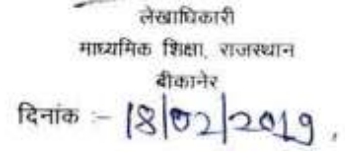 लेखाधिकारी
माध्यमिक शिक्षा, राजस्थान
बीकानेर
दिनांक :- 18/02/2019.